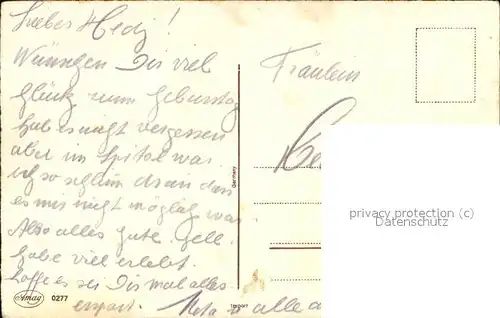 Lieber Hedj!
Wünschen Dir viel
Glück zum Geburtstag
hab es nicht vergessen
aber im Spital war
ich so schlim dran dass
es mir nicht möglich war
Also alles gute. gell.
habe viel erlebt.
hoffe es sei Dir mal alles
erspart. Meta u alle
Fräulein
Germany
Import
Amag 0277
privacy protection (c)
www.ansichtskarten-center.de